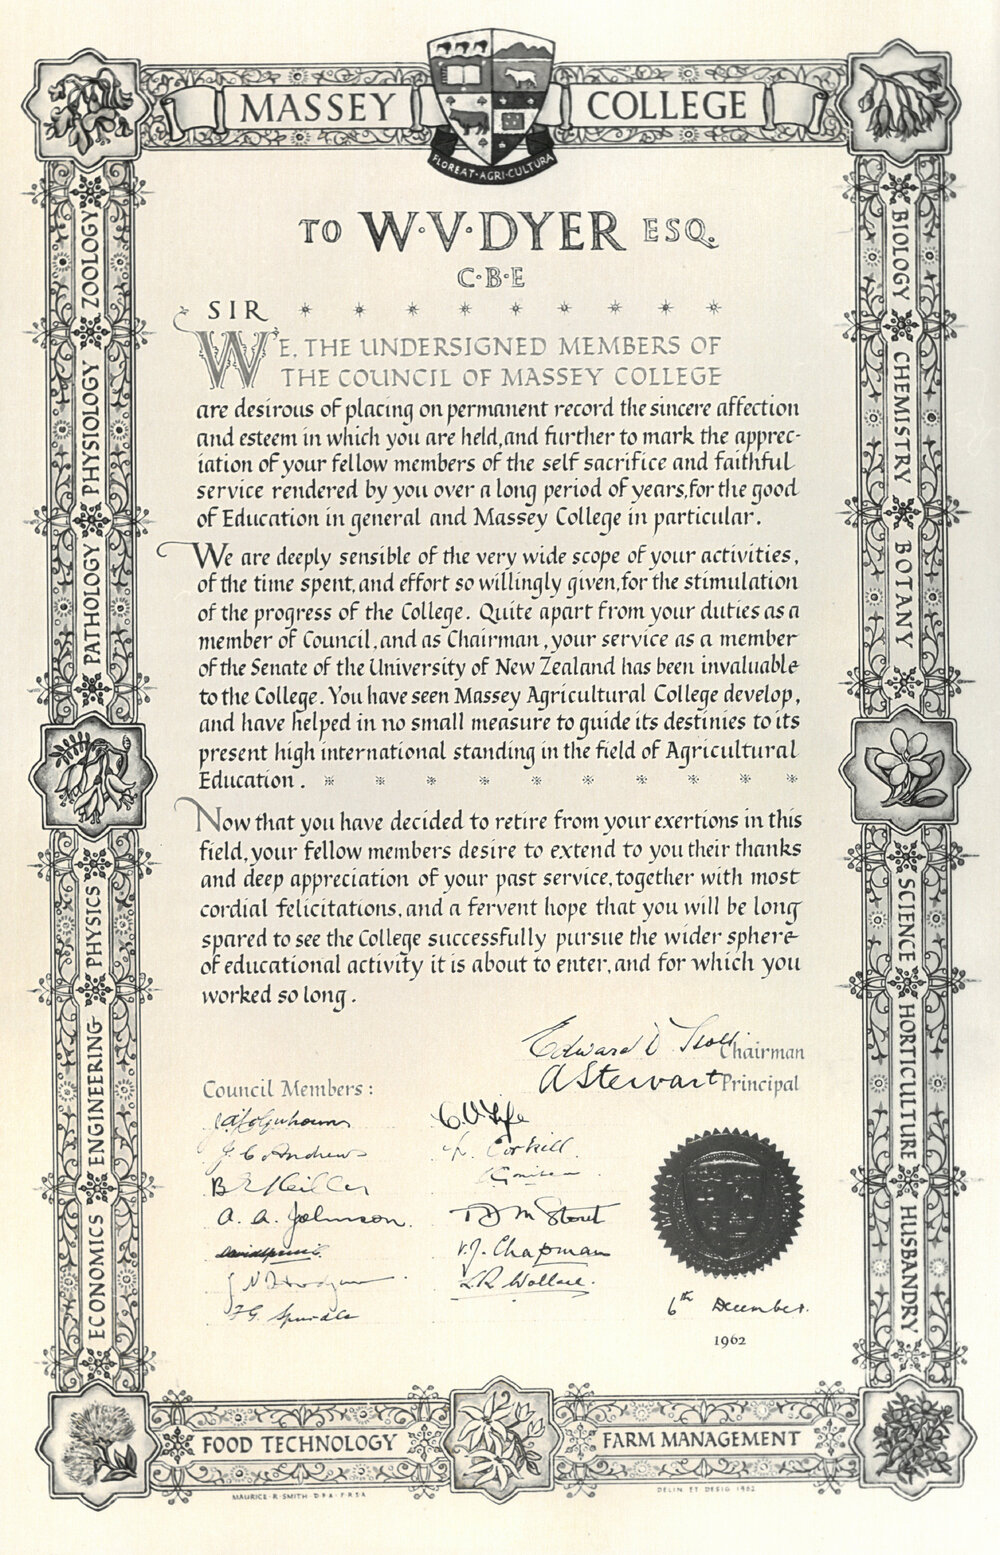 MASSEY COLLEGE
FLOREAT·AGRI·CULTURA
TO W·V·DYER ESQ.
C·B·E
SIR
WE, THE UNDERSIGNED MEMBERS OF
THE COUNCIL OF MASSEY COLLEGE
are desirous of placing on permanent record the sincere affection
and esteem in which you are held, and further to mark the apprec-
iation of your fellow members of the self sacrifice and faithful
service rendered by you over a long period of years, for the good
of Education in general and Massey College in particular.
We are deeply sensible of the very wide scope of your activities,
of the time spent, and effort so willingly given, for the stimulation
of the progress of the College. Quite apart from your duties as a
member of Council, and as Chairman, your service as a member
of the Senate of the University of New Zealand has been invaluable
to the College. You have seen Massey Agricultural College develop,
and have helped in no small measure to guide its destinies to its
present high international standing in the field of Agricultural
Education.
Now that you have decided to retire from your exertions in this
field, your fellow members desire to extend to you their thanks
and deep appreciation of your past service, together with most
cordial felicitations, and a fervent hope that you will be long
spared to see the College successfully pursue the wider sphere
of educational activity it is about to enter, and for which you
worked so long.
Edward D Chairman
A Stewart Principal
Council Members:
J. C. Andrews
A. A. Johnson.
Corkill
Stout
V. J. Chapman
L.R. Wallace.
6th December.
1962
ZOOLOGY
PHYSIOLOGY
PATHOLOGY
PHYSICS
ENGINEERING
ECONOMICS
BIOLOGY
CHEMISTRY
BOTANY
SCIENCE
HORTICULTURE
HUSBANDRY
FOOD TECHNOLOGY
FARM MANAGEMENT
MAURICE·R·SMITH D·F·A·F·R·S·A
DELIN ET DESIG 1962